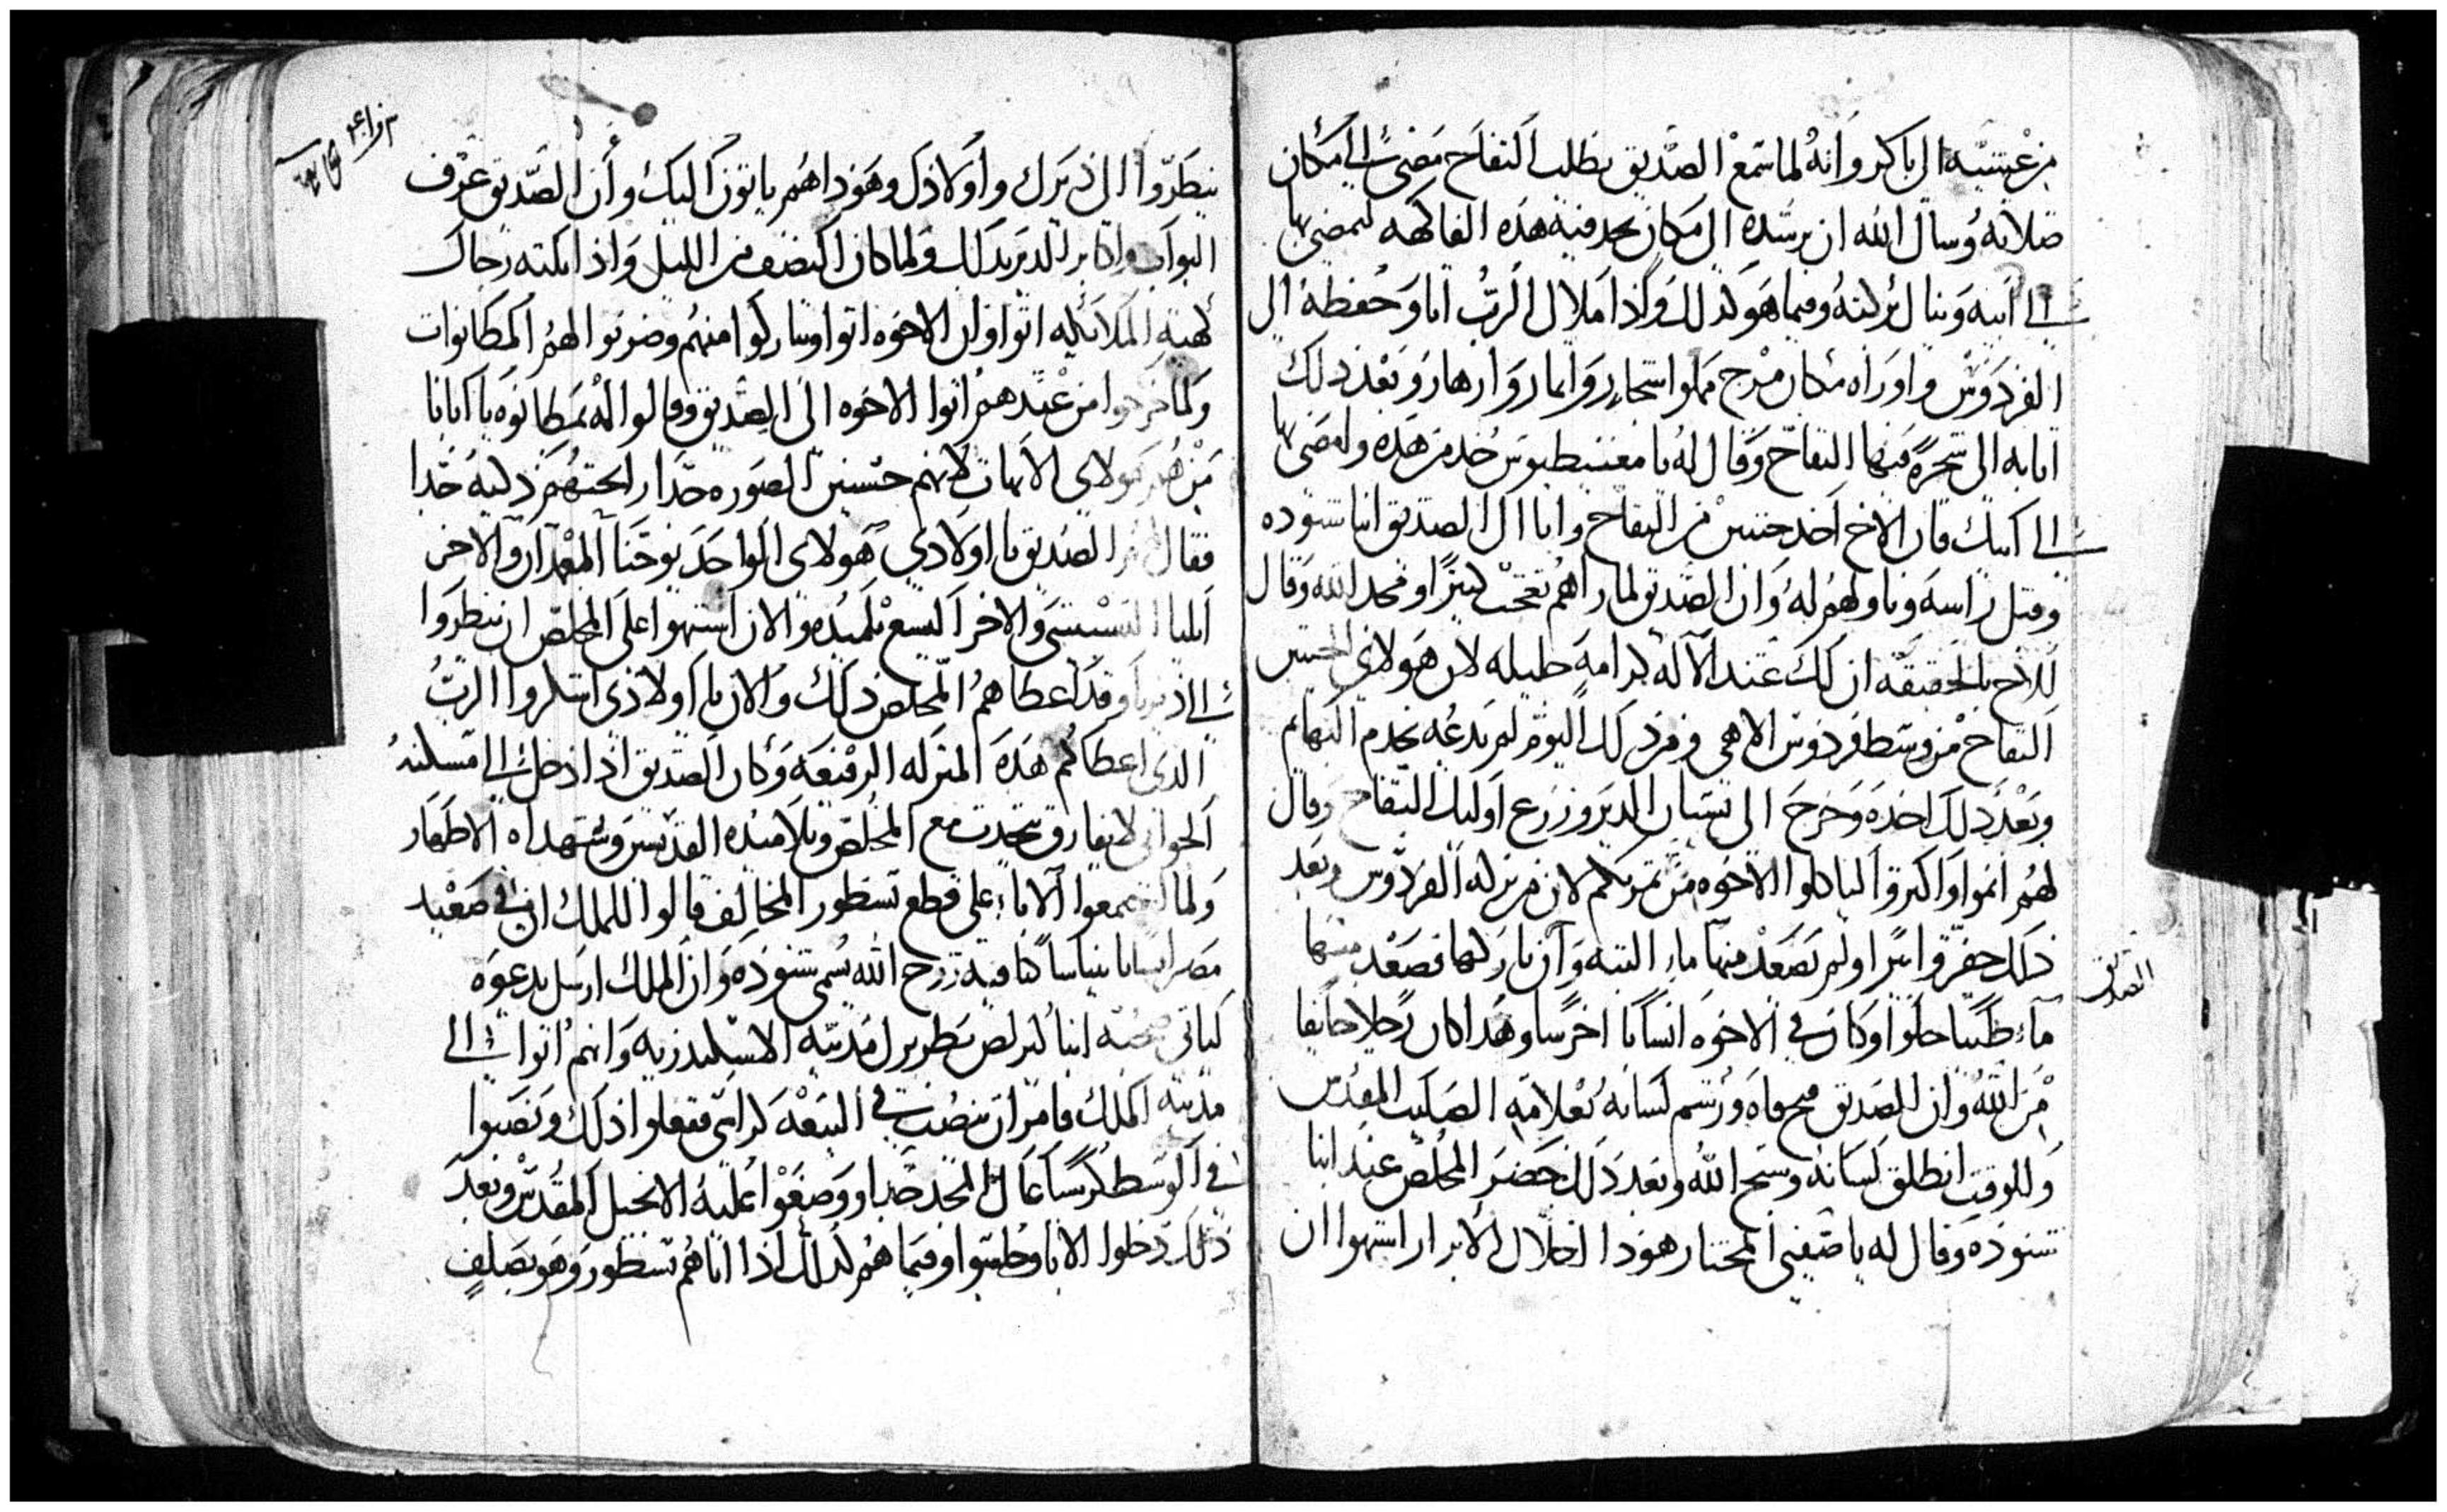 من عشيته الى باكر وانه لما سمع الصديق يطلب التفاح مضى الى مكان
صلاته وسال الله ان يرشده الى مكان يجد فيه هذه الفاكهه ليمضي بها
الى ابيه وينال بركته وفيما هو كذلك واذا ملاك الرب اتا وخطفه الى
الفردوس واوراه مكان مرج مملوا اشجار واثمار وازهار وبعد ذلك
اتا به الى شجرة فيها التفاح وقال له يا خذ من هذه وامضي بها
الى ابيك فان الاخ اخد خمسين من التفاح واتا الى الصديق انبا شنوده
وقبل راسه وناولهم له وان الصديق لما راهم تعجب كثيرا ومجد الله وقال
للاخ بالحقيقه ان لك عند الاله كرامه جليله لان هولاي الخمسين
التفاح من وسط فردوس الاهي ومن ذلك اليوم لم يدعه يخدم البهايم
وبعد ذلك اخده وخرج الى بستان الدير وزرع اوليك التفاح وقال
لهم انموا واكثروا لياكلوا الاخوه من ثمرتكم لان من بركه الفردوس وبعد
ذلك حفروا بيرا ولم تصعد منها ماء البته وان باركها فصعد منها
الصديق
ماء طيبا حلوا وكان في الاخوه انسانا اخرسا وهدا كان رجلا خايفا
من الله وان الصديق فتح فاه ورشم لسانه بعلامه الصليب المقدس
وللوقت انطلق لسانه وسبح الله وبعد ذلك حضر المخلص عند انبا
شنوده وقال له يا صفيي المختار هودا اخلاي الابرار اشتهوا ان
ينظروا الى ديرك واولادك وهودا هم ياتون اليك وان الصديق عرف
البواب واكابر الدير بذلك ولما كان النصف من الليل واذا ثلثه رجال
كهية الملائكه اتوا وان الاخوه اتوا وتباركوا منهم وضربوا لهم المطانوات
ولما خرجوا من عندهم اتوا الاخوه الى الصديق وقالوا له بمطانوه يا ابانا
من هم هولاي الابهات لانهم حسنين الصوره جدا رايحتهم ذكيه جدا
فقال لهم الصديق يا اولادي هولاي الواحد يوحنا المعمدان والاخر
ايليا التسبيتي والاخر اليسع تلميده والان اشتهوا على المخلص ان ينظروا
الى ديرنا وقد اعطاهم المخلص ذلك والان يا اولادي اشكروا الرب
الدي اعطاكم هذه المنزله الرفيعه وكان الصديق اذا دخل الى مسكنه
الجواني لا يفارق يتحدث مع المخلص وتلاميده القديسين وشهداه الاطهار
ولما اجتمعوا الاباء على قطع نسطور المخالف قالوا للملك ان في صعيد
مصر انسانا فيه روح الله يسمى شنوده وان الملك ارسل يدعوه
لياتي صحبة انبا كيرلص بطريرك مدينه الاسكندريه وانهم اتوا الى
مدينه الملك فامر ان ينصب في البيعه كراسي ففعلوا ذلك ونصبوا
في الوسط كرسيا عالي المجد جدا ووضعوا عليه الانجيل المقدس وبعد
ذلك دخلوا الابا وجلسوا وفيما هم كذلك اذا اتاهم نسطور وهو بصلف